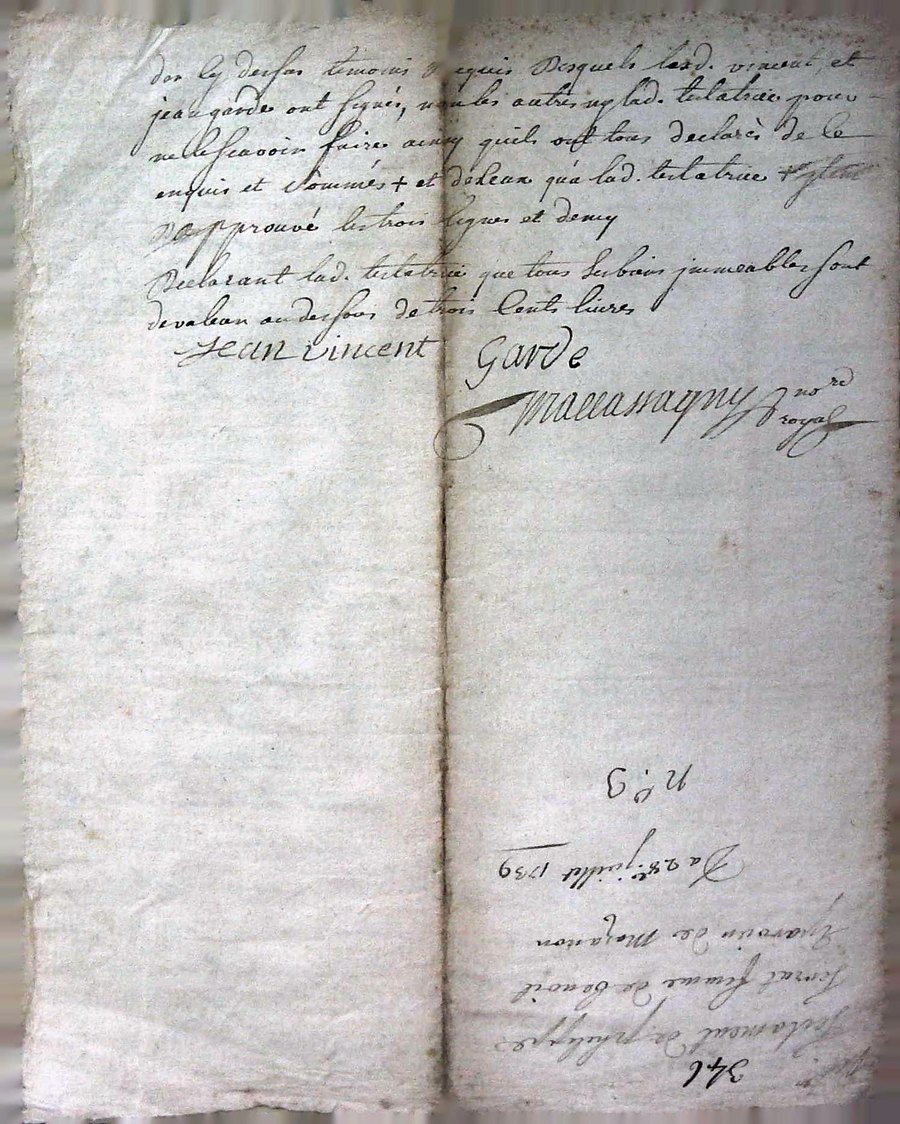 des cy dessus temoins requis desquels lesd. vincent, et
jean garde ont signés, non les autres ny lad. testatrice pour
ne le scavoir faire ainsy quils ont tous declarés de ce
enquis et sommés + et deheux qua lad. testatrice
D'approuvé les trois lignes et demy
Declarant lad. testatrice que tous ses biens immeubles sont
de valeur au dessous de trois cents livres
Jean vincent Garde
no.rd
royal
346
Testament de philippe
femme de benoit
de Mozanon
Du 28e. juillet 1739
n.o 3